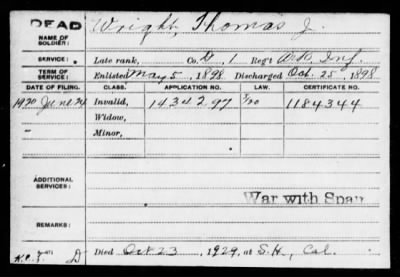 DEAD
NAME OF SOLDIER: Wright, Thomas J.
SERVICE: Late rank, Co. D, 1 Reg't Ark. Inf.
TERM OF SERVICE: Enlisted May 5, 1898 Discharged Oct. 25, 1898
DATE OF FILING. CLASS. APPLICATION NO. LAW. CERTIFICATE NO.
1920 June 24 Invalid, 1434297 1184344
" Widow,
Minor,
ADDITIONAL SERVICES:
War with Spain
REMARKS:
Died Oct 23, 1929, at S.H., Cal.